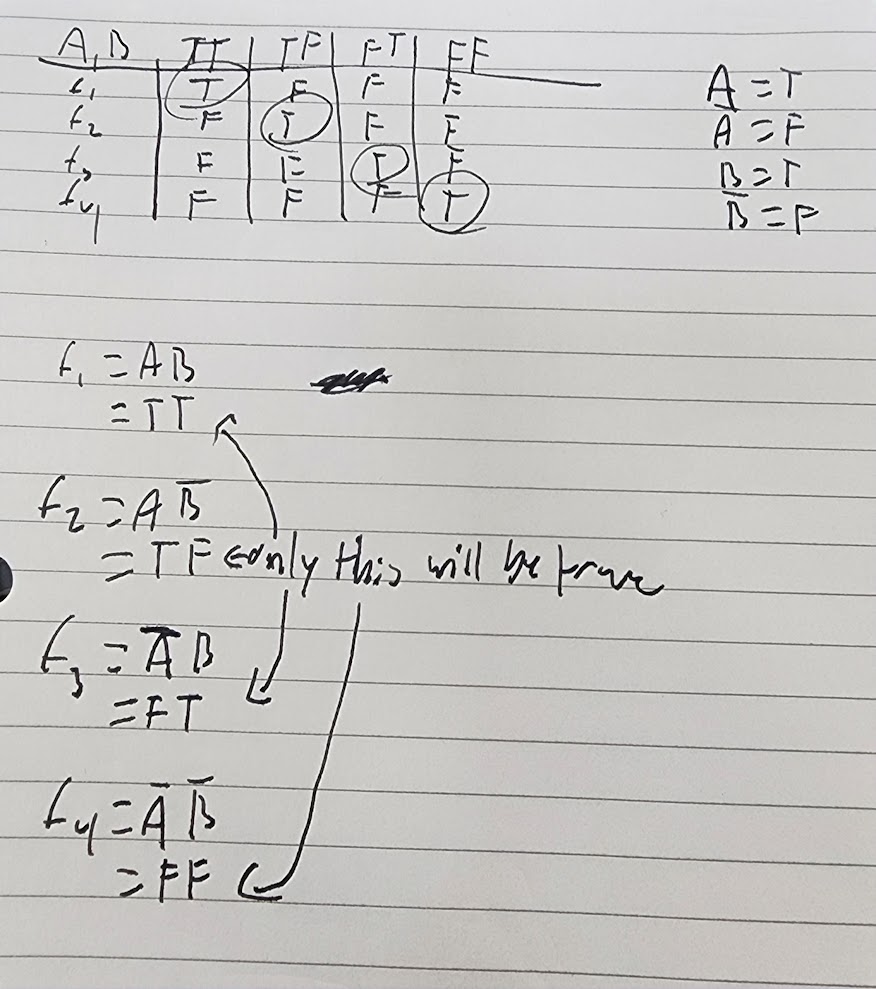 A,B TT TF FT FF
f₁ T F F F
f₂ F T F F
f₃ F F T F
f₄ F F F T
A = T
A̅ = F
B = T
B̅ = F
f₁ = AB
= TT
f₂ = AB̅
= TF ← only this will be true
f₃ = A̅B
= FT
f₄ = A̅ B̅
= FF